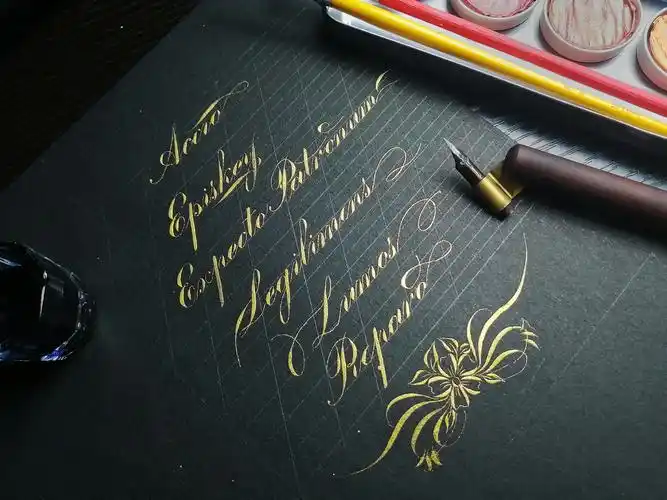 Accio
Episkey
Expecto Patronum
Legilimens
Lumos
Reparo